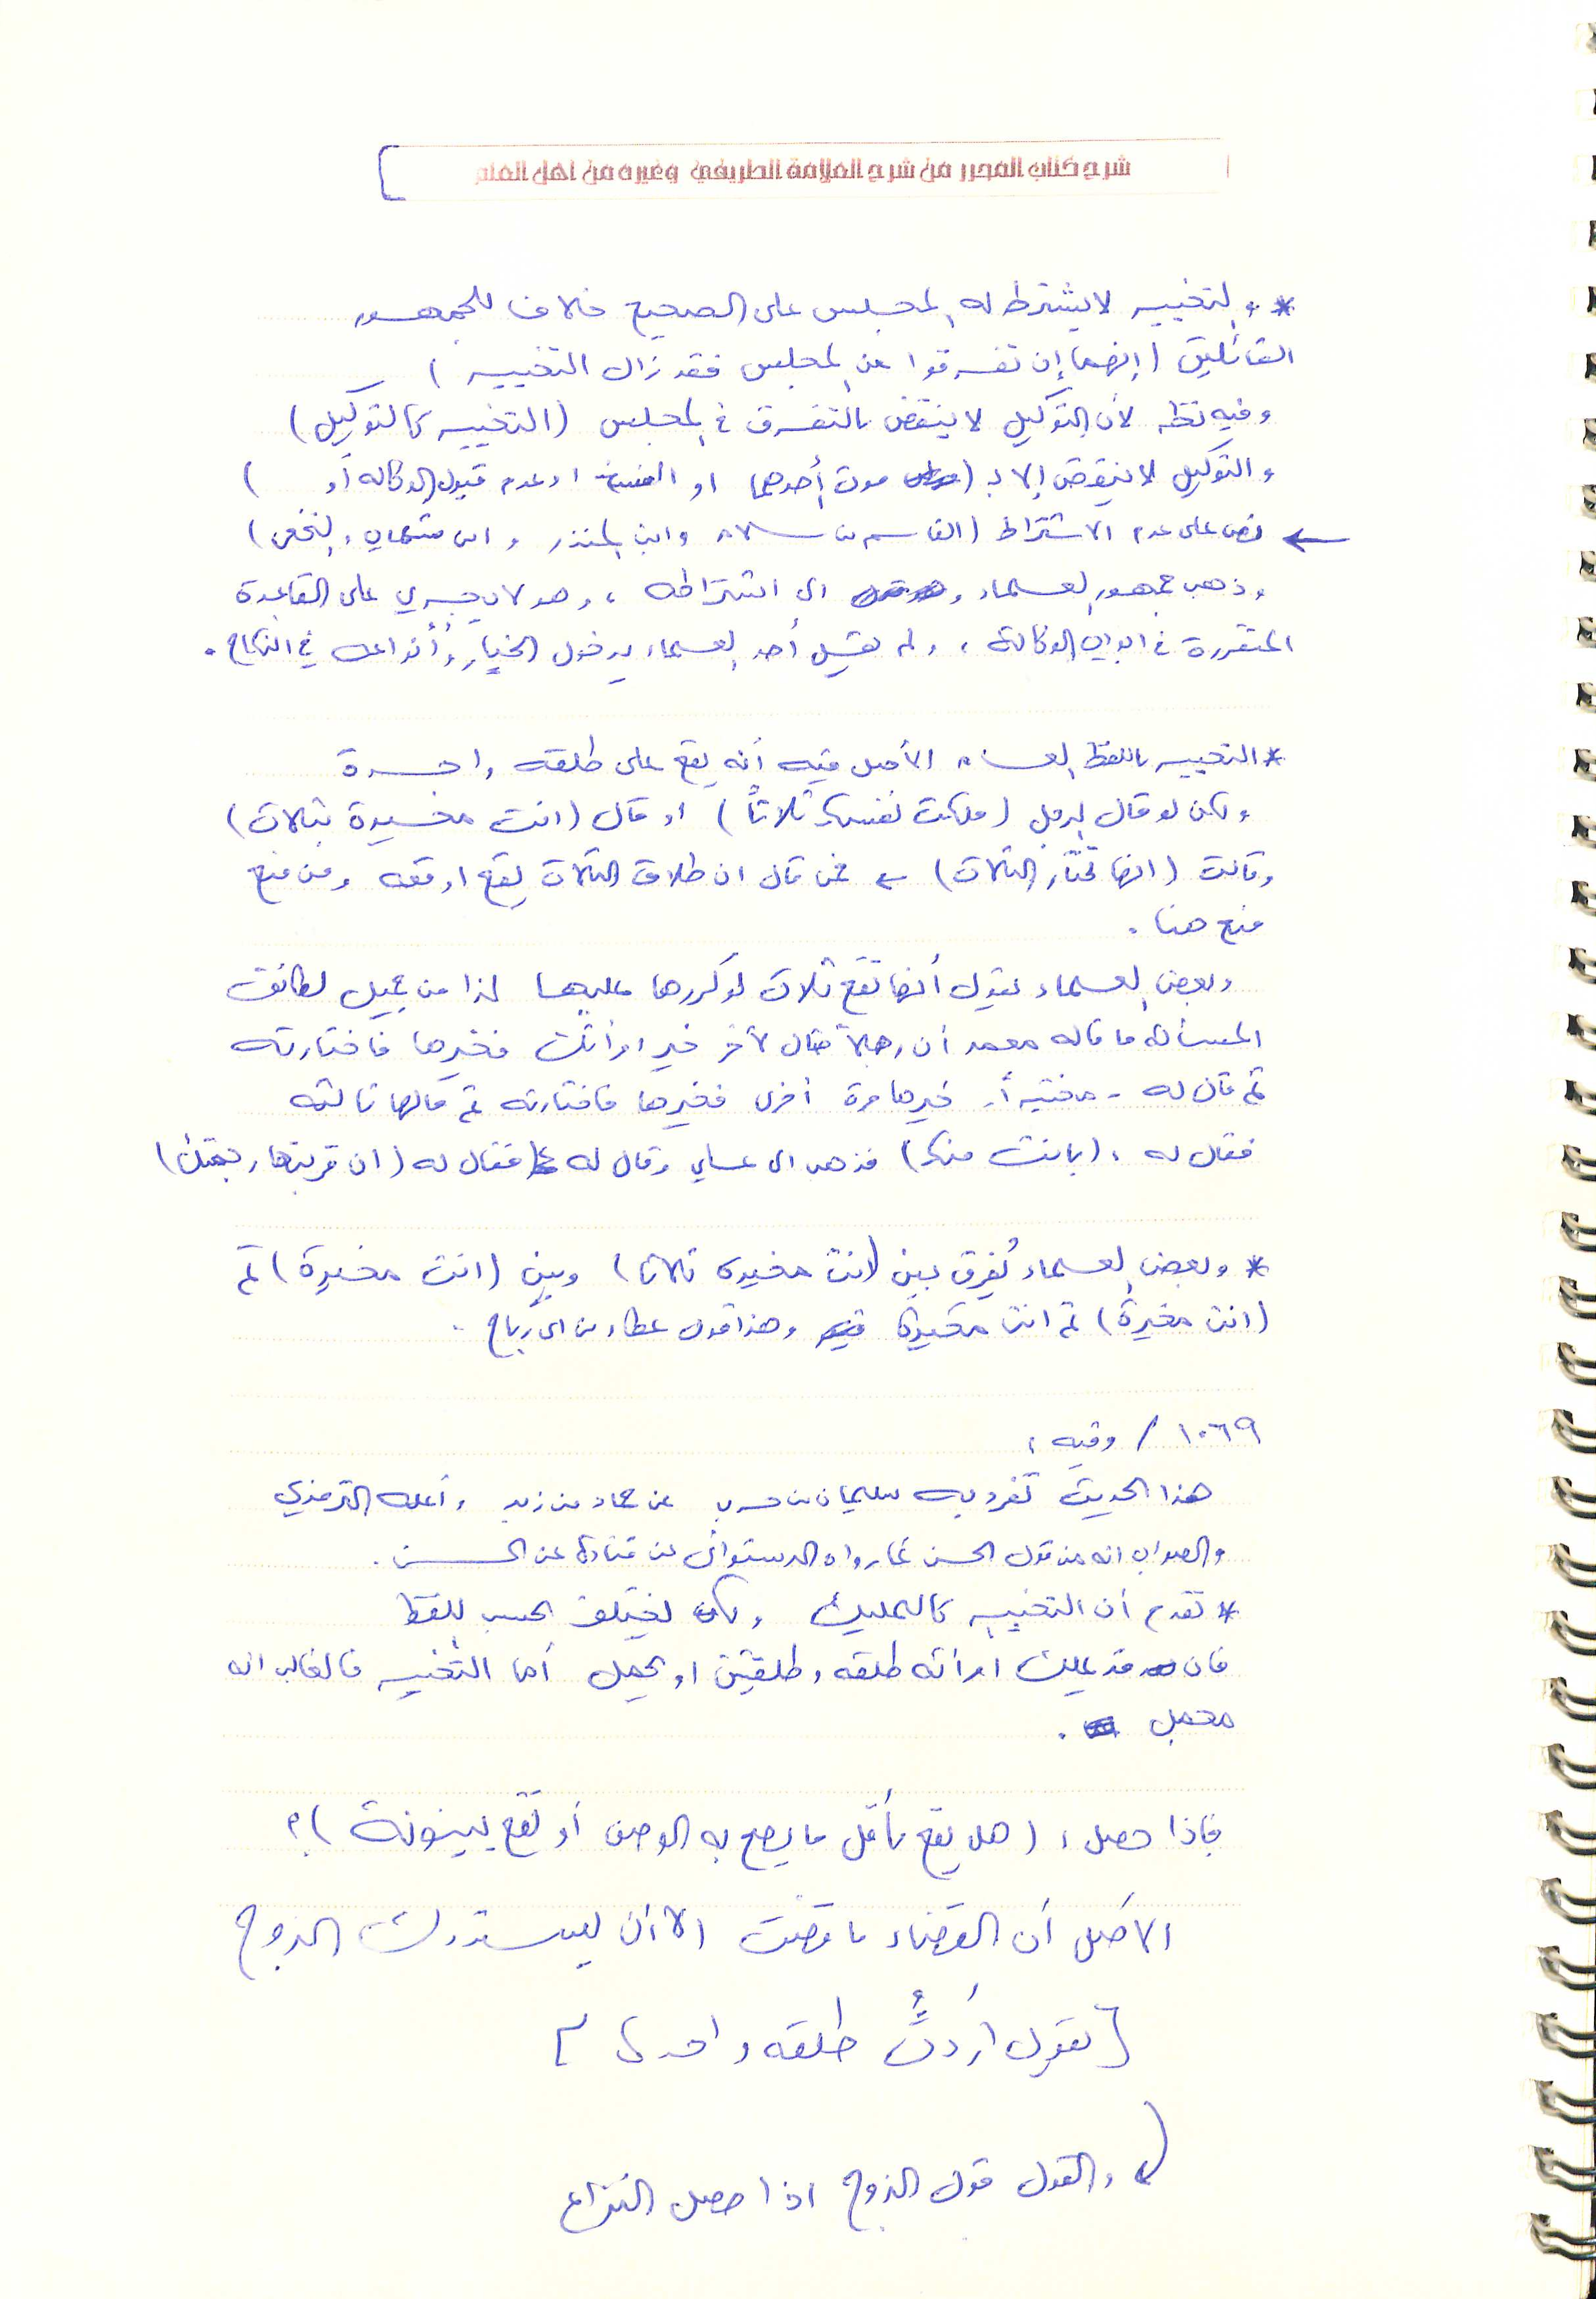 شرح كتاب المحرر من شرح العلامة الطريفي وغيره من اهل العلم
* والتخيير لا يشترط له المجلس على الصحيح خلافا للجمهور
القائلين (إنهما إن تفرقوا من المجلس فقد زال التخيير)
وفيه نظر لأن التوكيل لا ينتقض بالتفرق في المجلس (التخيير كالتوكيل)
والتوكيل لا ينتقض إلا بـ (موت أحدهما او الفسخ او عدم قبول الوكاله أو )
← نص على عدم الاشتراط (القاسم بن سلام وابن المنذر و ابن شهاب والنخعي)
وذهب جمهور العلماء الى اشتراطه ، وهو لا يجري على القاعدة
المتقررة في ابواب الوكالة ، ولم يقل أحد العلماء بدخول الخيار وأنواعه في النكاح .
* التخيير باللفظ العام الأصل فيه أنه يقع على طلقه واحدة
ولكن لو قال الرجل (ملكت نفسك ثلاثاً) او قال (انت مخيرة بثلاث)
وقالت (انها تختار الثلاث) فمن قال ان طلاق الثلاث يقع اوقعه ومن منع
منع هنا .
وبعض العلماء يقول أنها تقع ثلاث لو كررها عليها لذا من لطائف
المسألة ما قاله معمر أن رجلاً قال لآخر خير امرأتك فخيرها فاختارته
ثم قال له خيرها مرة أخرى فخيرها فاختارته ثم قالها ثالثه
فقال له ، (بانت منك) فذهب الى علي وقال له فقال له (ان قربتها رجمتك)
* وبعض العلماء يُفرق بين (انت مخيره ثلاثا) وبين (انت مخيرة) ثم
(انت مخيرة) ثم انت مخيرة وهذا قول عطاء بن ابي رباح .
١٠٦٩ / وفيه ،
هذا الحديث تفرد به سليمان بن حرب عن حماد بن زيد وأعله الترمذي
والصواب انه من قول الحسن كما رواه الدستوائي عن قتادة عن الحسن .
* تقدم أن التخيير كالتمليك ولكن يختلف بحسب اللفظ
فان قد يملك امرأته طلقه وطلقتين او يجمل أما التخيير فالغالب انه
مجمل .
فإذا حصل ، (هل يقع بأقل ما يصح به الوصف أو تقع بينونة)؟
الأصل أن القضاء ما قضت الا أن يستدرك الزوج
[يقول أردتُ طلقه واحدة]
والقول قول الزوج اذا حصل النزاع